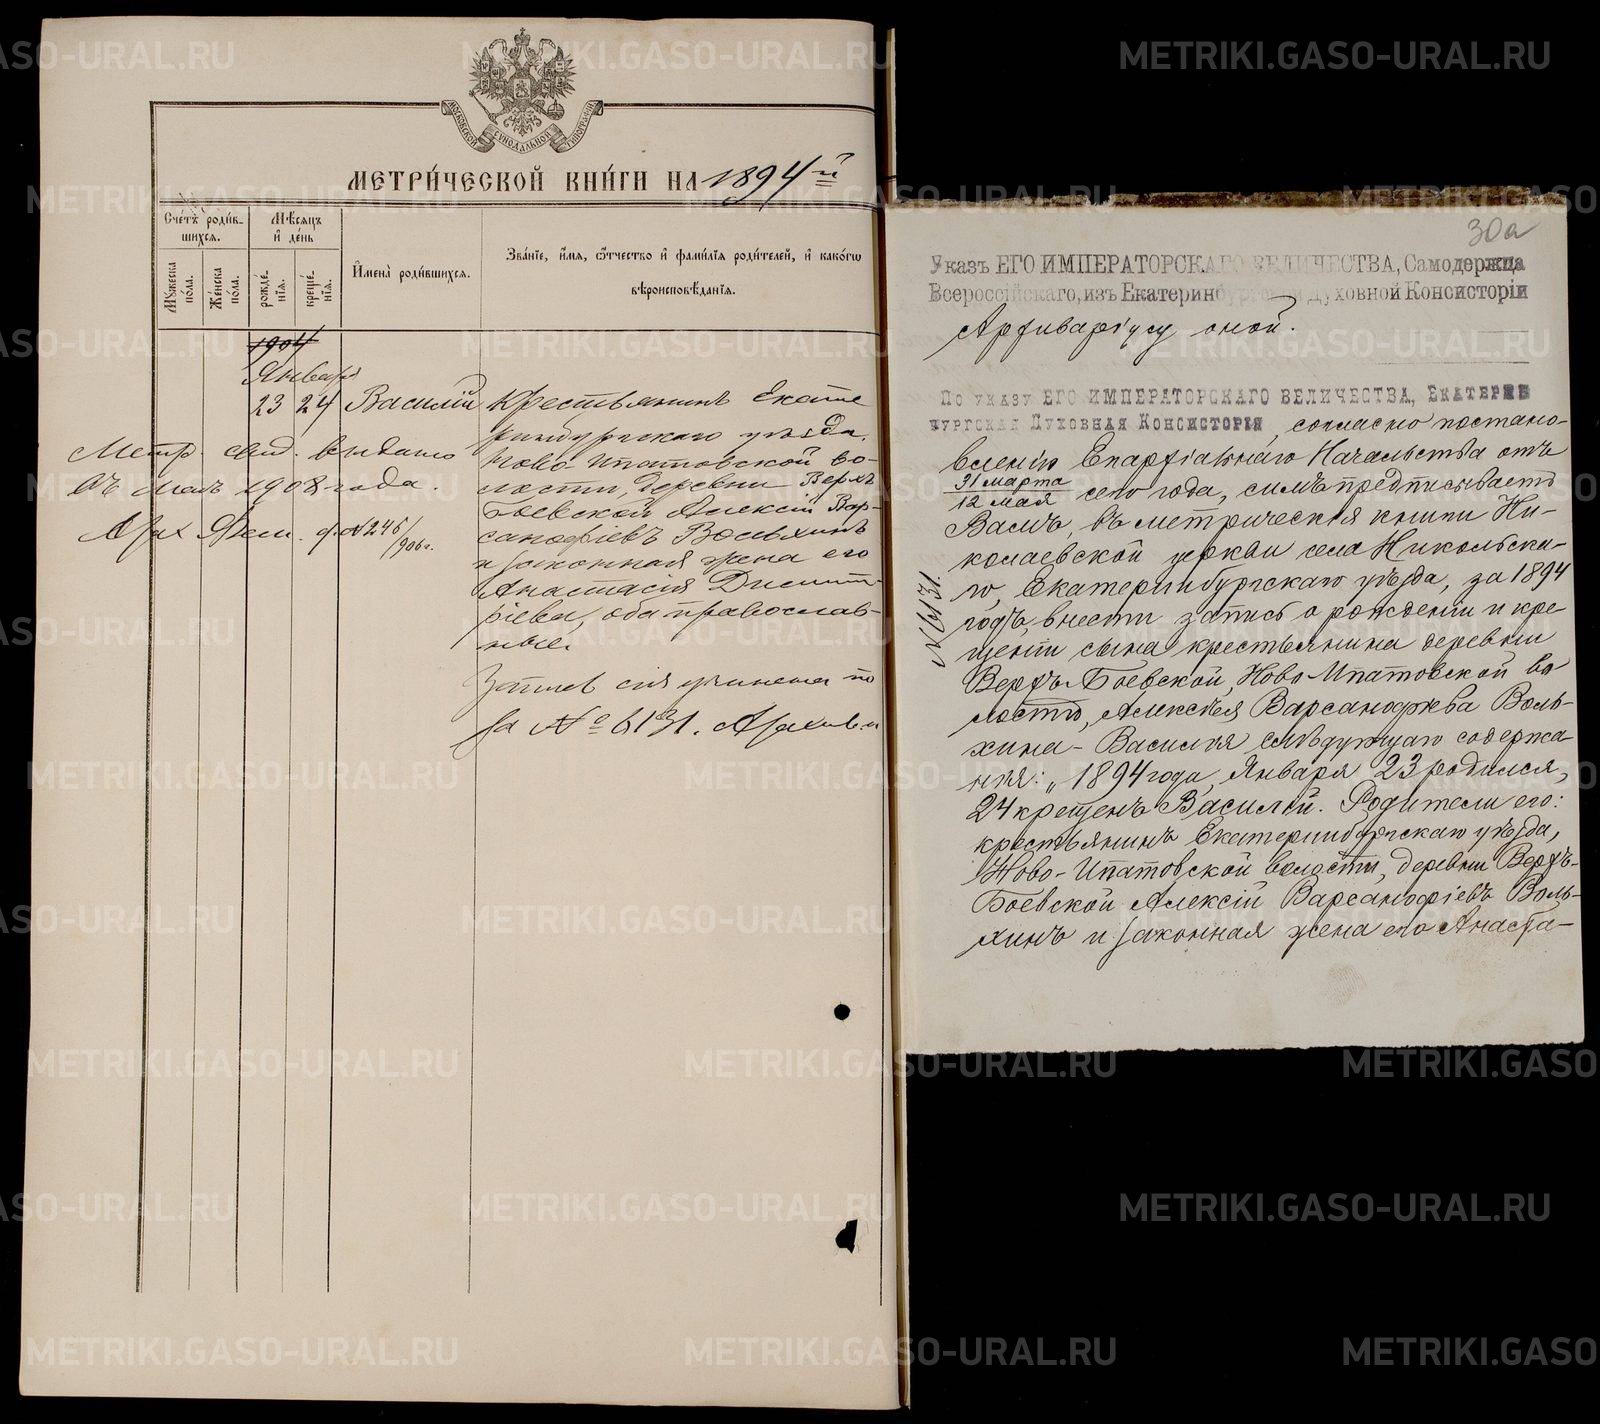 МОСКОВСКОЙ СѴНОДАЛЬНОЙ ТИПОГРАФІИ
МЕТРИ́ЧЕСКОЙ КНИ́ГИ НА 1894-й
Сче́тъ роди́в-
шихся.
Мѣ́сяцъ
и҆ де́нь
И҆мена̀ роди́вшихся.
Зва́нїе, и҆́мя, ѻ҆́тчество и҆ фами́лїя роди́телей, и҆ како́гѡ
вѣроисповѣ́данїя.
Мꙋ́жеска
по́ла.
Же́нска
по́ла.
рожде́-
нїя.
креще́-
нїя.
1904
Январь
23 24 Василій
Крестьянинъ Екате
ринбургскаго уѣзда,
Ново-Ипатовской во-
лости, деревни Верхъ
Боевской Алексій Вар-
санофіевъ Вольхинъ
и законная жена его
Анастасія Димит-
ріева, оба православ-
ные.
Запись сія учинена по
за № 6131.
Метр. свид. выдано
въ маѣ 1908 года.
№ 246/906 г.
30а
Указъ ЕГО ИМПЕРАТОРСКАГО ВЕЛИЧЕСТВА, Самодержца
Всероссійскаго, изъ Екатеринбургской Духовной Консисторіи
Архиваріусу оной.
По указу ЕГО ИМПЕРАТОРСКАГО ВЕЛИЧЕСТВА, Екатерин
бургская Духовная Консисторія, согласно постано-
вленію Епархіальнаго Начальства отъ
31 марта
12 мая сего года, симъ предписываетъ
Вамъ, въ метрическія книги Ни-
колаевской церкви села Никольска-
го, Екатеринбургскаго уѣзда, за 1894
годъ, внести запись о рожденіи и кре-
щеніи сына крестьянина деревни
Верхъ-Боевской, Ново-Ипатовской во
лости, Алексѣя Варсанофьева Воль-
хина - Василія слѣдующаго содержа-
нія: „1894 года, Января 23 родился,
24 крещенъ Василій. Родители его:
крестьянинъ Екатеринбургскаго уѣзда,
Ново-Ипатовской волости, деревни Верхъ-
Боевской Алексій Варсанофіевъ Воль-
хинъ и законная жена его Анаста-
№ 6131.
METRIKI.GASO-URAL.RU